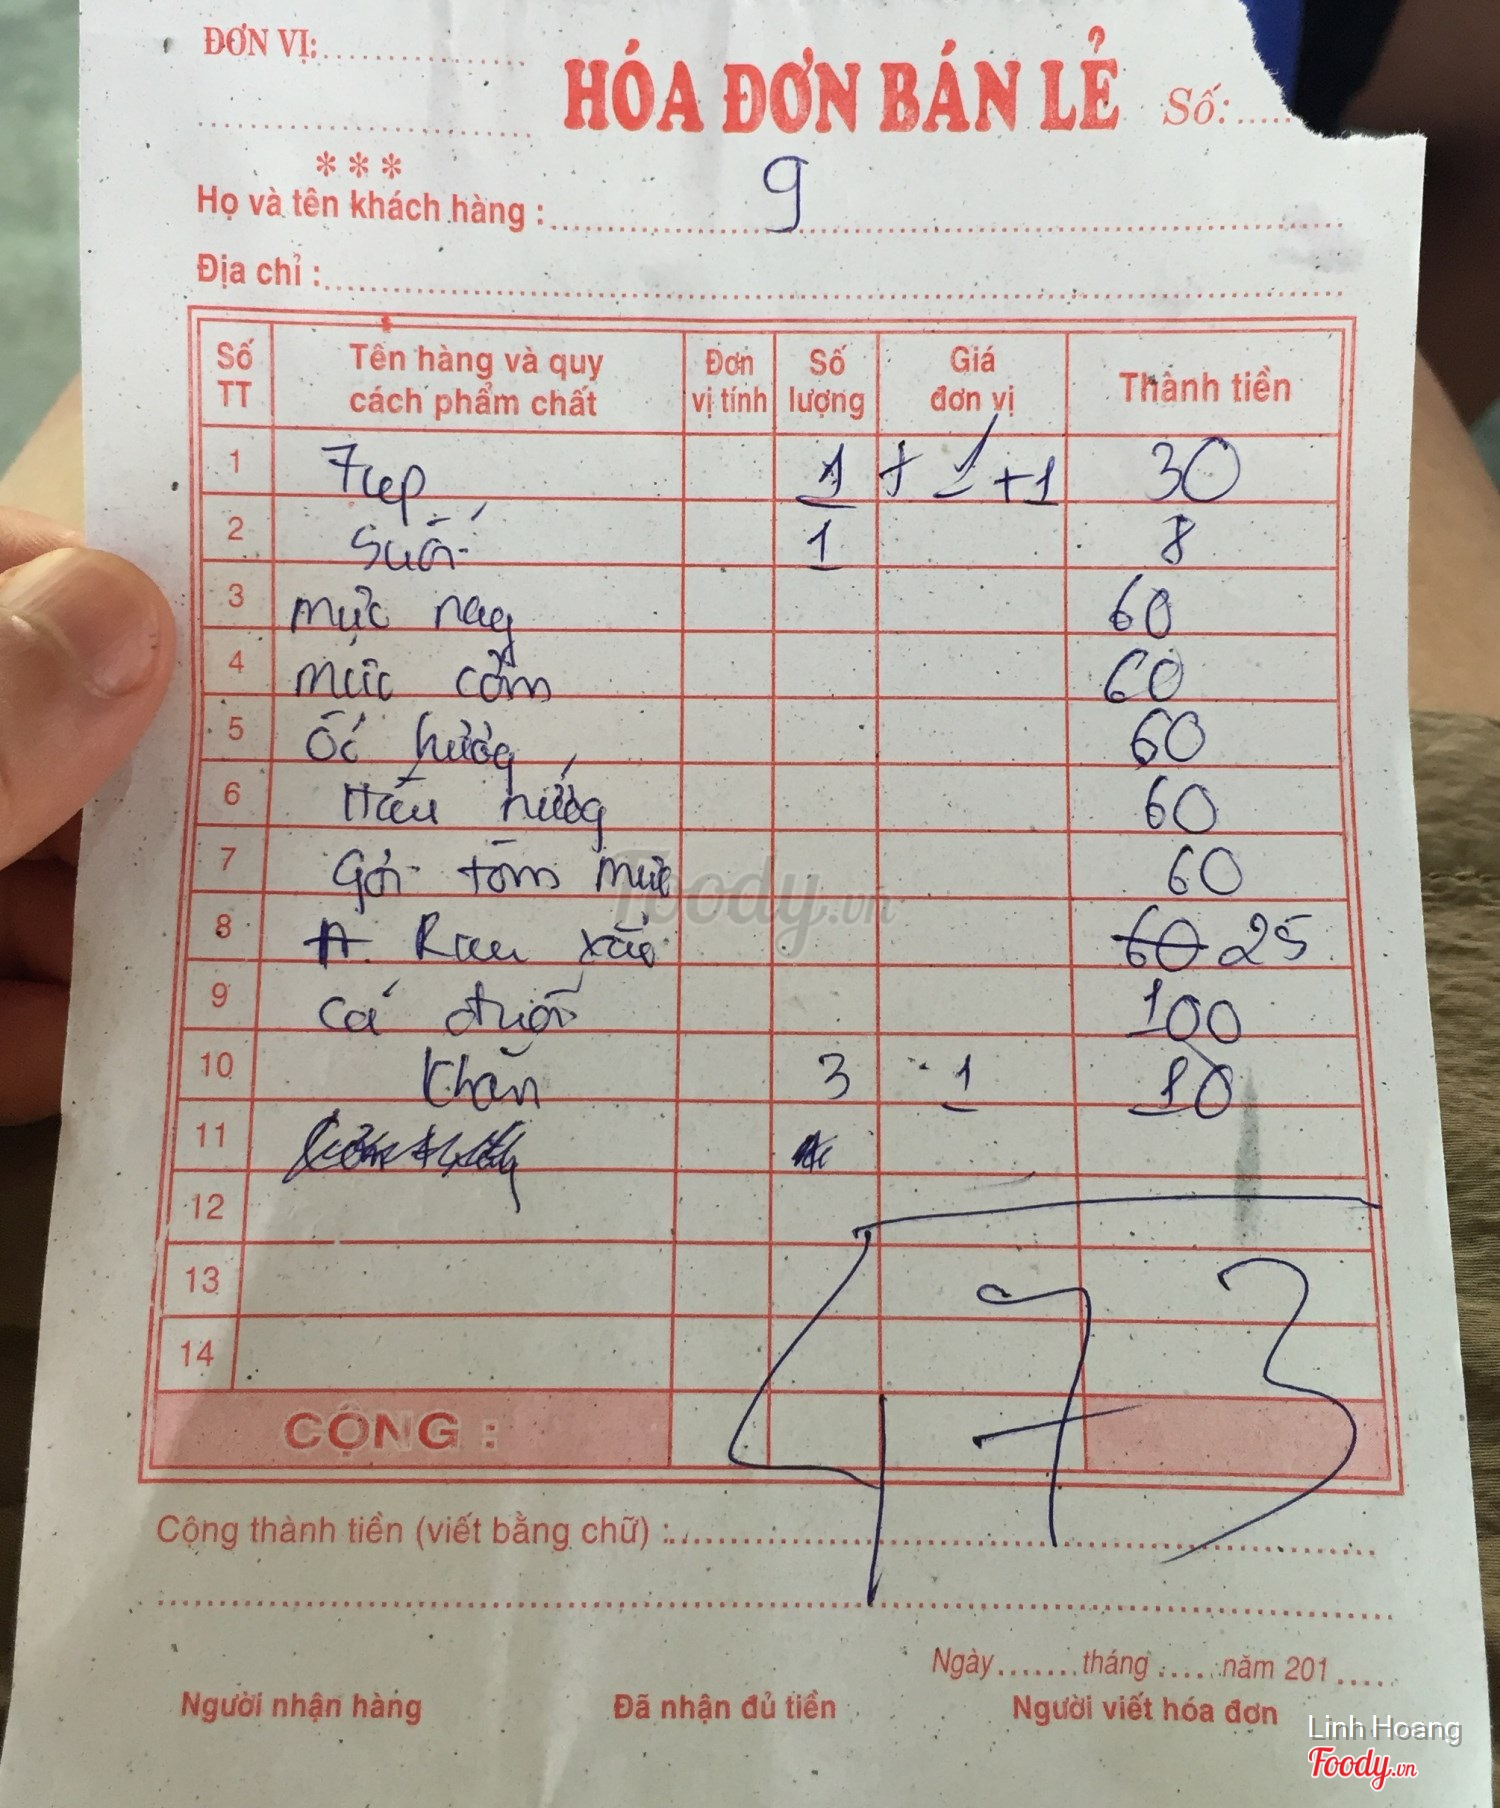 ĐƠN VỊ:
HÓA ĐƠN BÁN LẺ
Số:
***
Họ và tên khách hàng : 9
Địa chỉ :
Số TT Tên hàng và quy cách phẩm chất Đơn vị tính Số lượng Giá đơn vị Thành tiền
1 7up 1 + 1 +1 30
2 Suối 1 8
3 mực nag 60
4 mực cơm 60
5 ốc hươg 60
6 Hàu nướg 60
7 Gỏi tôm mực 60
8 Rau xào 60 25
9 Cá đuối 100
10 Khăn 3 1 10
11
12
13
14
CỘNG : 473
Cộng thành tiền (viết bằng chữ) :
Ngày tháng năm 201
Người nhận hàng Đã nhận đủ tiền Người viết hóa đơn
Foody.vn
Linh Hoang
Foody.vn